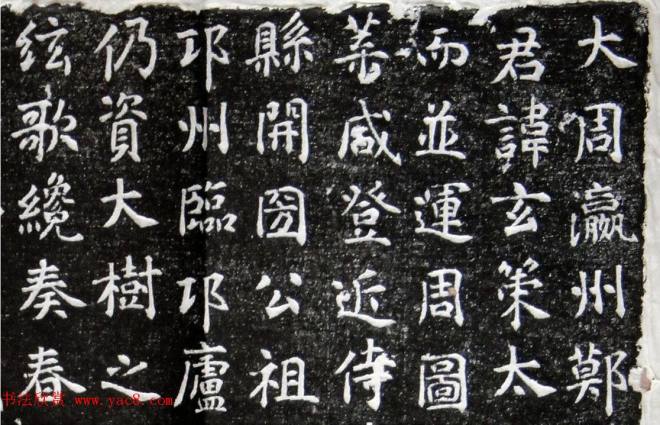 大周瀛州鄭
君諱玄策太
而並運周圖
業咸登近侍
縣開圀公祖
邛州臨邛廬
仍資大樹之
絃歌纔奏春
书法欣赏 www.yac8.com